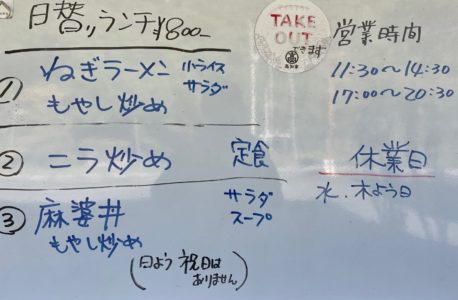 日替りランチ¥800-
① ねぎラーメン 小ライス
サラダ
もやし炒め
② ニラ炒め 定食
③ 麻婆丼 サラダ
スープ
もやし炒め
(日よう 祝日は
ありません)
TAKE
OUT
できます
営業時間
11:30〜14:30
17:00〜20:30
休業日
水、木よう日